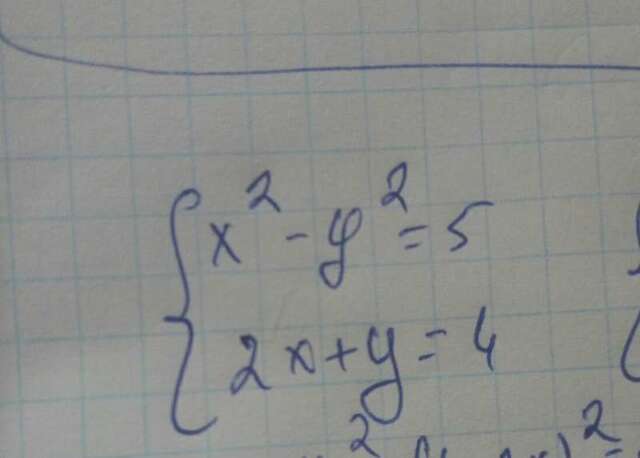 x² - y² = 5
2x + y = 4